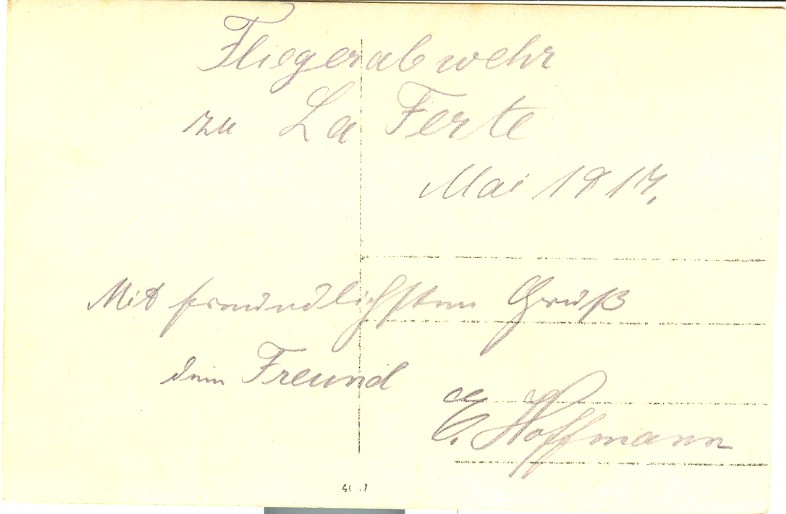 Fliegerabwehr
zu La Ferte
Mai 1917.
Mit freundlichsten Gruß
dein Freund
E. Hoffmann